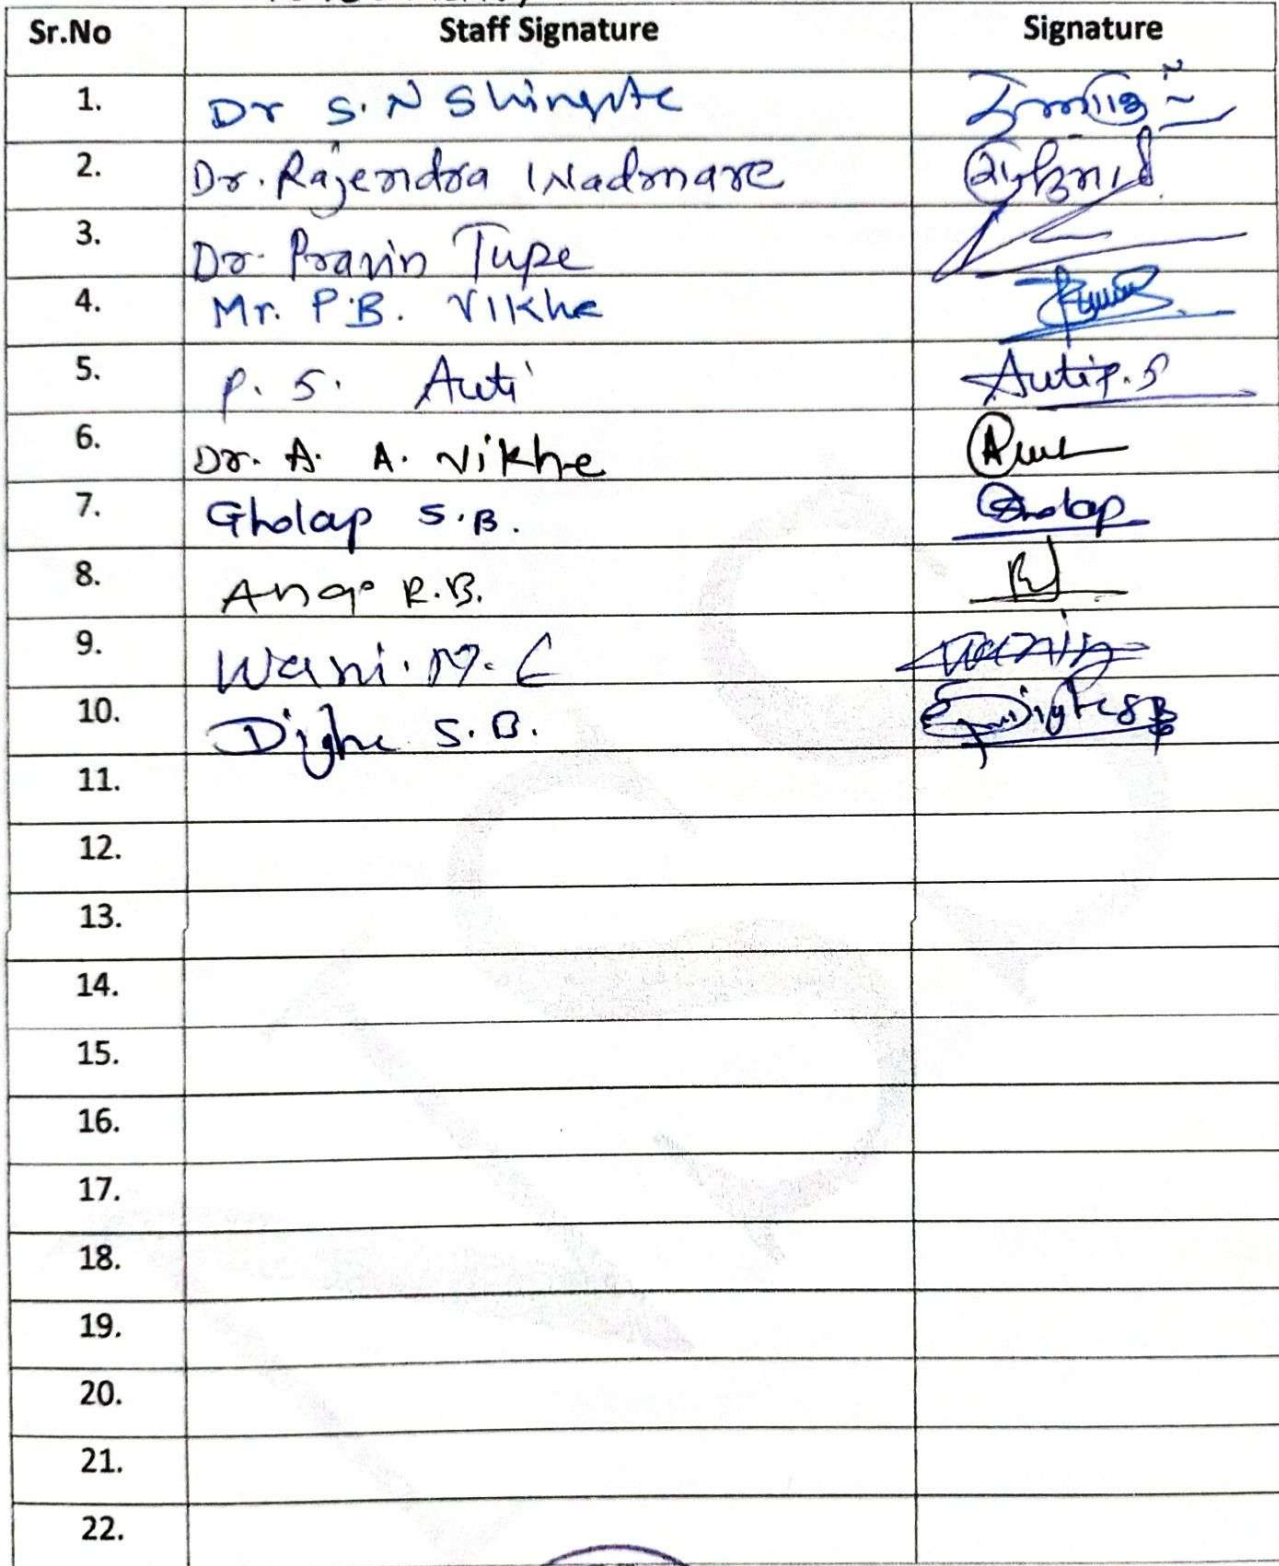 Sr.No Staff Signature Signature
1. Dr S.N Shingote
2. Dr. Rajendra Wadmare
3. Dr. Pravin Tupe
4. Mr. P.B. Vikhe
5. P. S. Auti Auti P. S
6. Dr. A. A. Vikhe
7. Gholap S.B. Gholap
8. R.B.
9. Wani. M. C Wani
10. Dighe S.B. Dighe SB
11.
12.
13.
14.
15.
16.
17.
18.
19.
20.
21.
22.